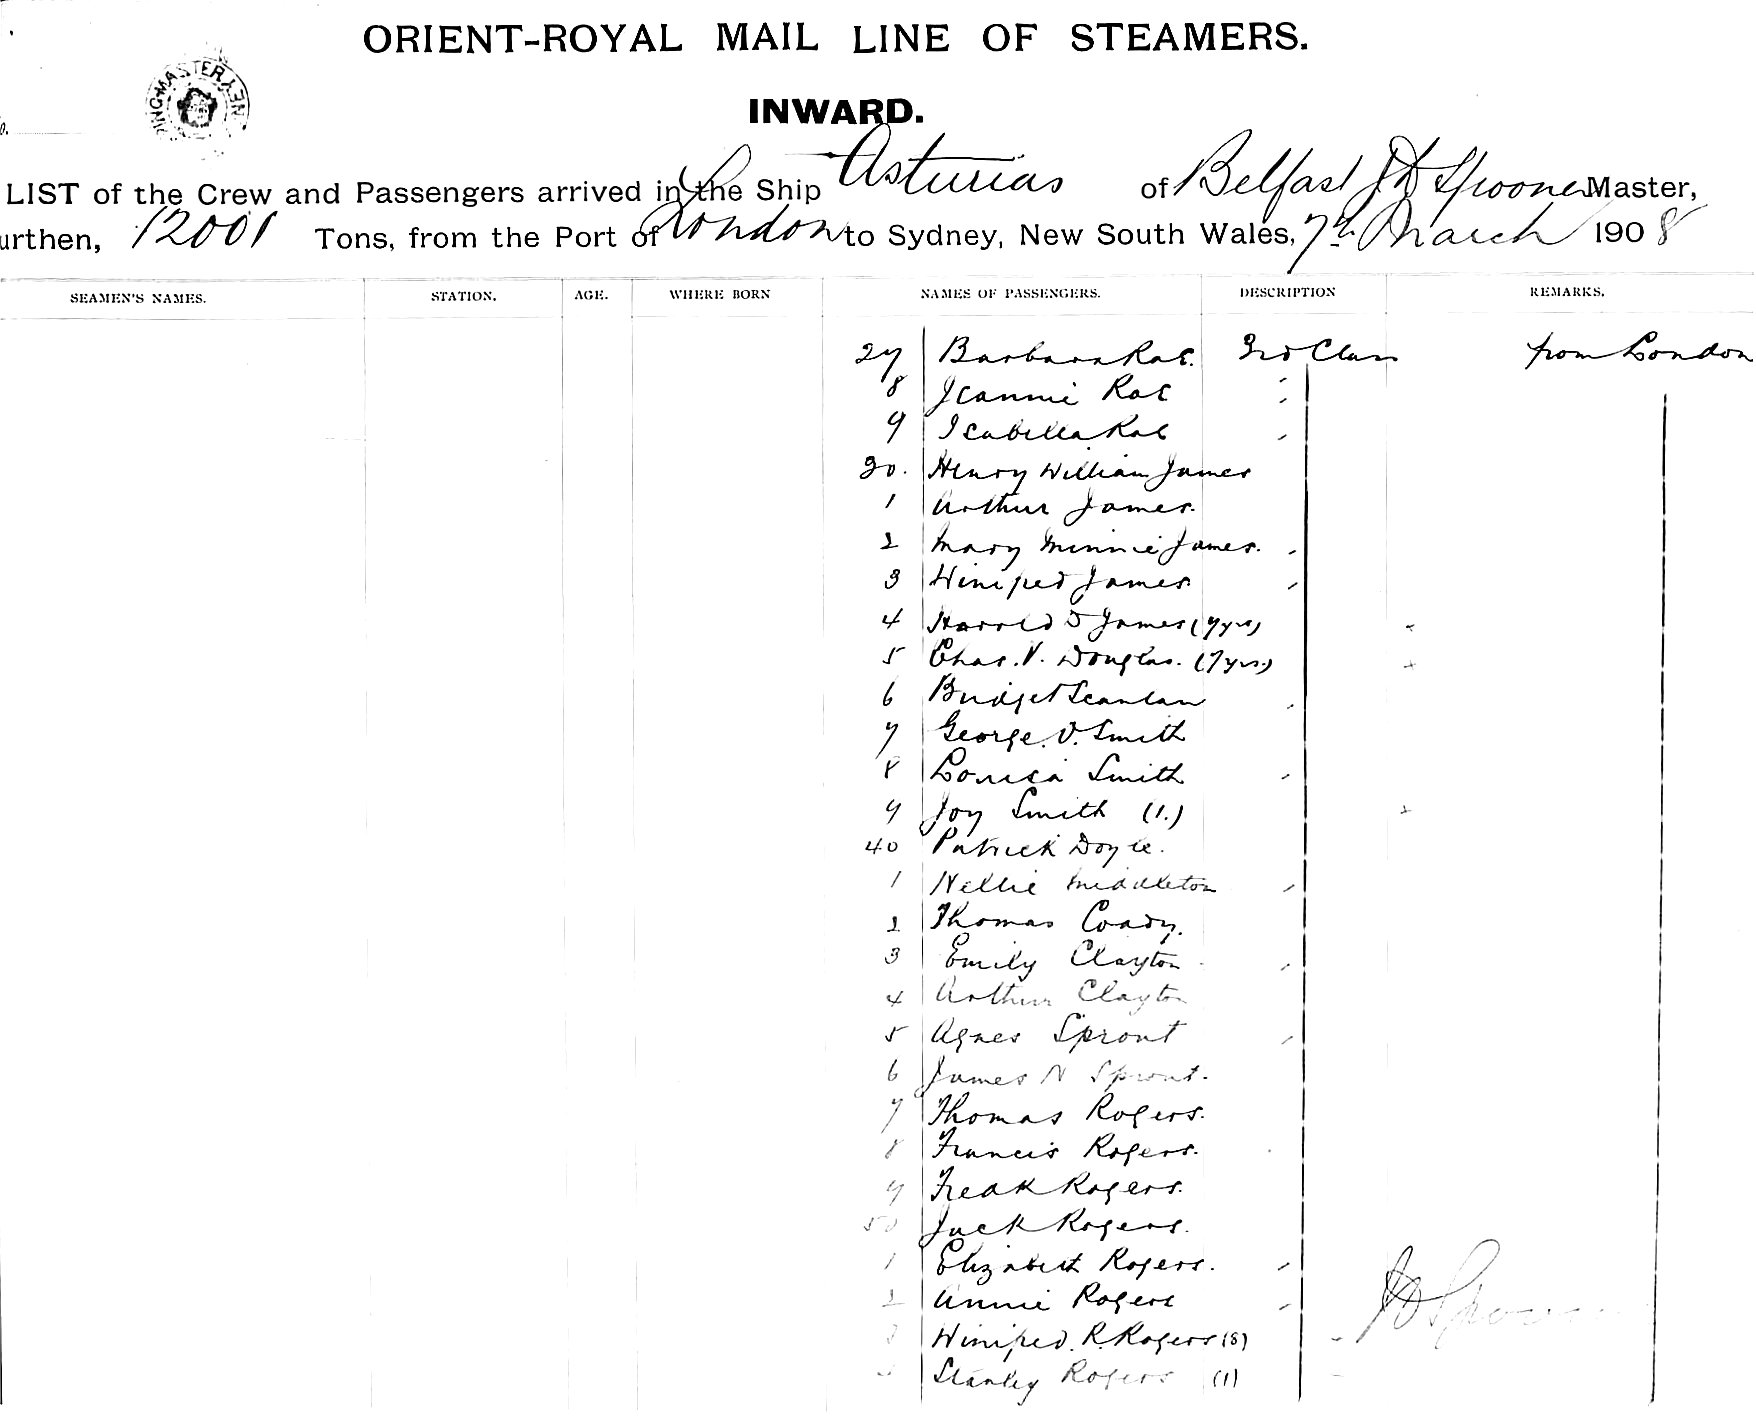 ORIENT-ROYAL MAIL LINE OF STEAMERS.
INWARD.
LIST of the Crew and Passengers arrived in the Ship Asturias of Belfast J D Spooner Master,
urthen, 12001 Tons, from the Port of London to Sydney, New South Wales, 7th March 1908
SEAMEN'S NAMES. STATION. AGE. WHERE BORN NAMES OF PASSENGERS. DESCRIPTION REMARKS.
27 Barbara Rae. 3rd Class from London
8 Jeannie Rae
9 Isabella Rae
30. Henry William James
1 Arthur James.
2 Mary Minnie James.
3 Winifred James
4 Harold James (7yrs)
5 Chas. V. Douglas. (7yrs.)
6 Bridget Scanlan
7 George. V. Smith
8 Louisa Smith
9 Joy Smith (1.)
40 Patrick Doyle.
1 Nellie Middleton
2 Thomas Coady.
3 Emily Clayton
4 Arthur Clayton
5 Agnes Sprout
6 James N Sprout.
7 Thomas Rogers.
8 Francis Rogers.
9 Fredk Rogers.
50 Jack Rogers.
1 Elizabeth Rogers.
2 Annie Rogers
3 Winifred. R. Rogers (8)
Stanley Rogers (1)
J D Spooner